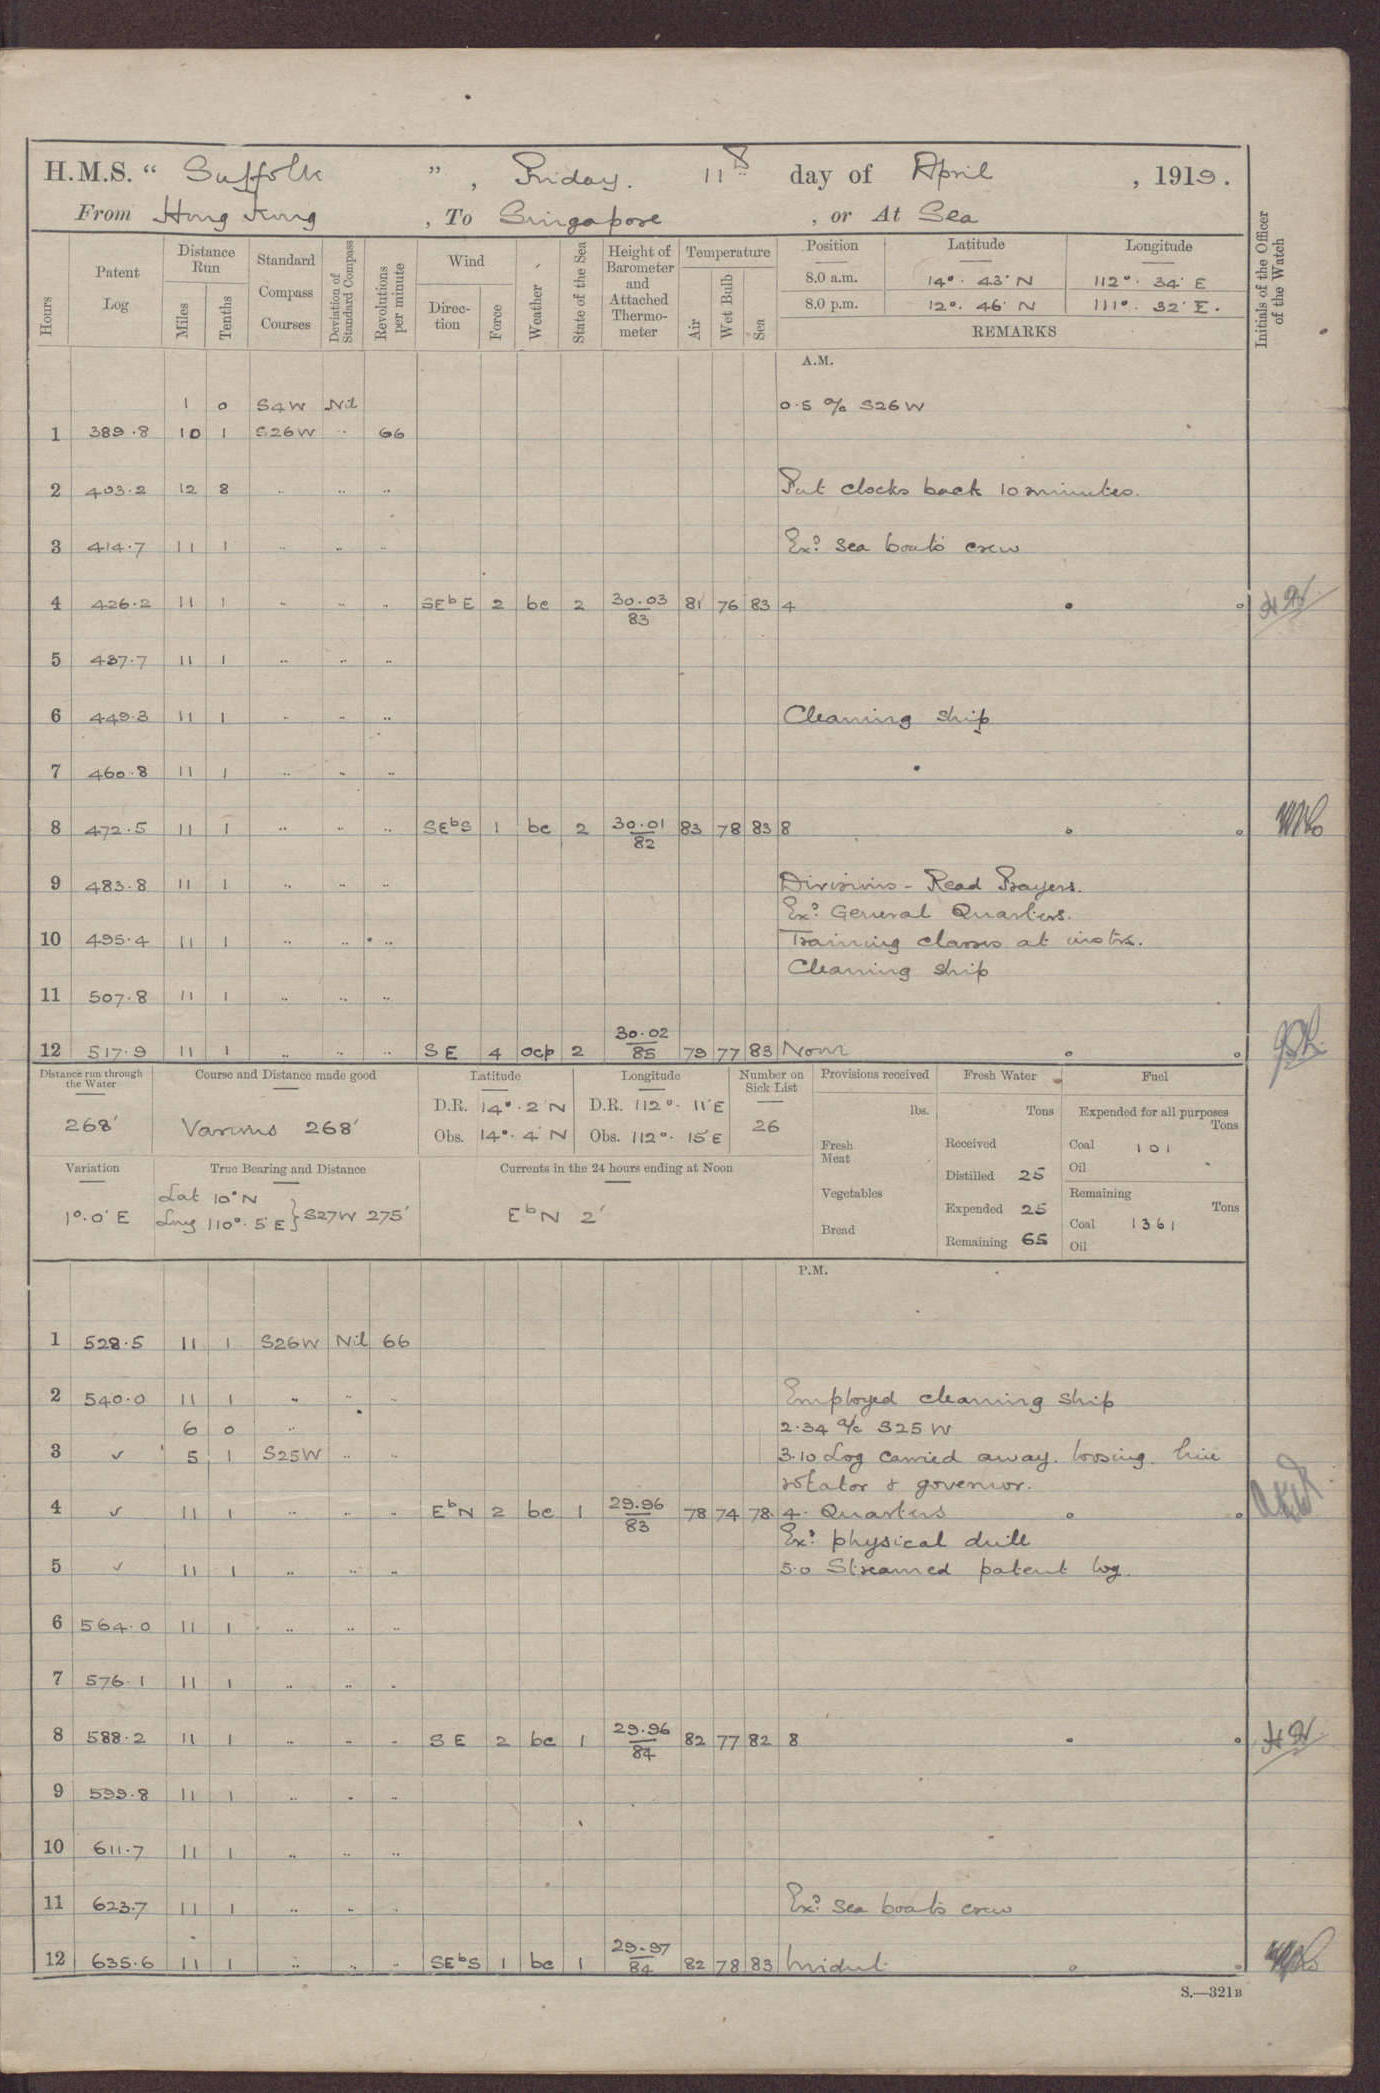 H.M.S. “ Suffolk ”, Friday. 11th day of April, 1919.
From Hong Kong, To Singapore, or At Sea
Hours
Patent Log
Distance Run
Miles
Tenths
Standard Compass Courses
Deviation of Standard Compass
Revolutions per minute
Wind
Direction
Force
Weather
State of the Sea
Height of Barometer and Attached Thermometer
Temperature
Air
Wet Bulb
Sea
Position Latitude Longitude
8.0 a.m. 14°. 43' N 112°. 34' E
8.0 p.m. 12°. 46' N 111°. 32' E.
REMARKS
Initials of the Officer of the Watch
A.M.
1 0 S4W Nil 0.5 a/c S26W
1 389.8 10 1 S26W .. 66
2 403.2 12 8 .. .. .. Put clocks back 10 minutes.
3 414.7 11 1 .. .. .. Exd sea boats crew
4 426.2 11 1 .. .. .. SEbE 2 bc 2 30.03/83 81 76 83 4
5 437.7 11 1 .. .. ..
6 449.3 11 1 .. .. .. Cleaning ship
7 460.8 11 1 .. .. ..
8 472.5 11 1 .. .. .. SEbS 1 bc 2 30.01/82 83 78 83 8
9 483.8 11 1 .. .. .. Divisions - Read Prayers.
Exd General Quarters.
10 495.4 11 1 .. .. .. Training classes at instrn.
Cleaning ship
11 507.8 11 1 .. .. ..
12 517.9 11 1 .. .. .. SE 4 ocp 2 30.02/85 79 77 83 Noon
Distance run through the Water
268'
Course and Distance made good
Various 268'
Latitude
D.R. 14°. 2' N
Obs. 14°. 4' N
Longitude
D.R. 112°. 11' E
Obs. 112°. 15' E
Number on Sick List
26
Provisions received
lbs.
Fresh Meat
Vegetables
Bread
Fresh Water
Tons
Received
Distilled 25
Expended 25
Remaining 65
Fuel
Expended for all purposes
Tons
Coal 101
Oil
Remaining
Tons
Coal 1361
Oil
Variation
1°.0' E
True Bearing and Distance
Lat 10°N
Long 110°. 5' E } S27W 275'
Currents in the 24 hours ending at Noon
EbN 2'
P.M.
1 528.5 11 1 S26W Nil 66
2 540.0 11 1 .. .. .. Employed cleaning ship
6 0 .. 2.34 a/c S25W
3 ✓ 5 1 S25W .. .. 3.10 Log carried away. loosing line
rotator & governor.
4 ✓ 11 1 .. .. .. EbN 2 bc 1 29.96/83 78 74 78 4. Quarters
Exd physical drill
5 ✓ 11 1 .. .. .. 5.0 Streamed patent log.
6 564.0 11 1 .. .. ..
7 576.1 11 1 .. .. ..
8 588.2 11 1 .. .. .. SE 2 bc 1 29.96/84 82 77 82 8
9 599.8 11 1 .. .. ..
10 611.7 11 1 .. .. ..
11 623.7 11 1 .. .. .. Exd sea boats crew
12 635.6 11 1 .. .. .. SEbS 1 bc 1 29.97/84 82 78 83 Midnt.
S.—321B